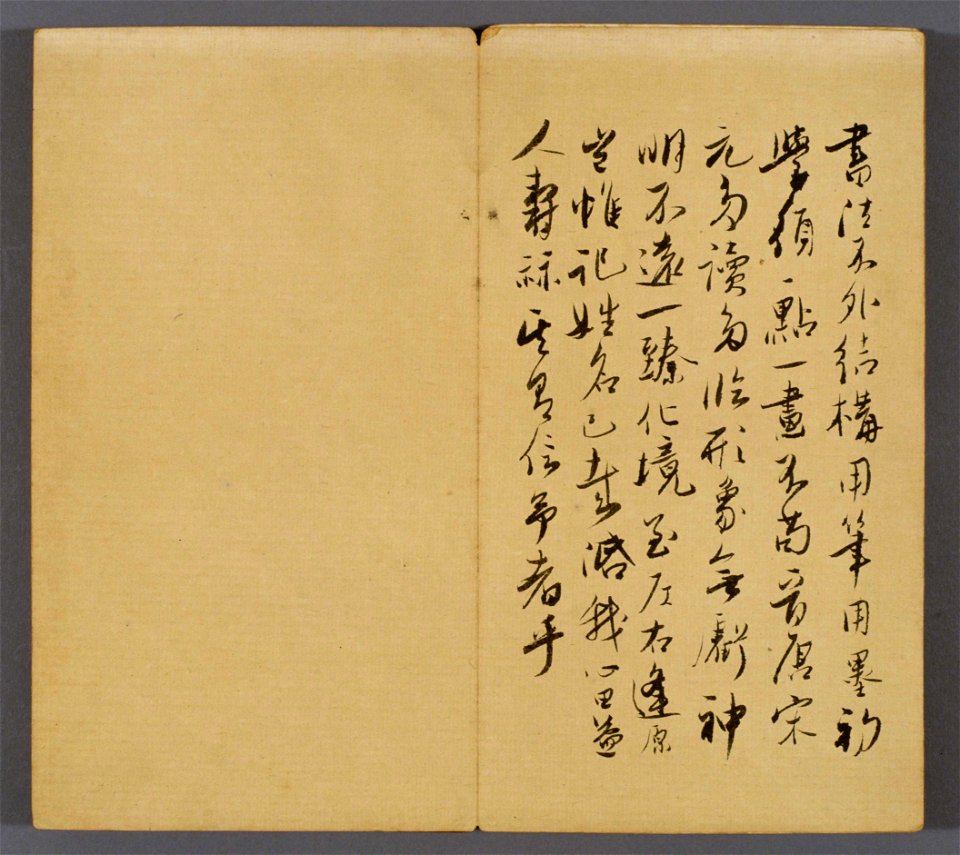 書法不外結構用筆用墨初
學須一點一畫不苟晉唐宋
元多讀多臨形象無虧神
明不遠一臻化境至左右逢原
豈惟記姓名已哉潛我心田益
人壽祿其習信予者乎